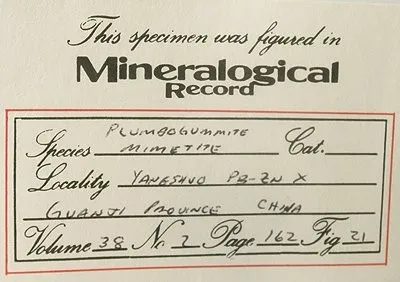 This specimen was figured in
Mineralogical
Record
PLUMBOGUMMITE
Species MIMETITE Cat.
Locality YANGSHUO PB-ZN X
GUANJI PROVINCE CHINA
Volume 38 No 2 Page 162 Fig 21